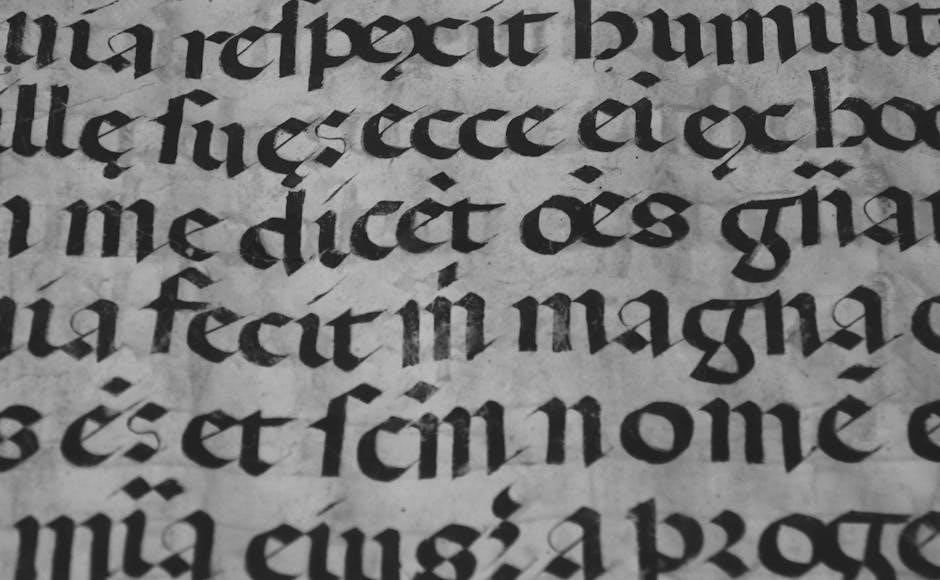 uia reſpexit humilit
illę ſuęs ecce ei ex hoc
n me dicēt oēs gn̄ar
uia fecit m̍ magna q
s ēs et ſcm̄ nomē e
mīa eius a proge